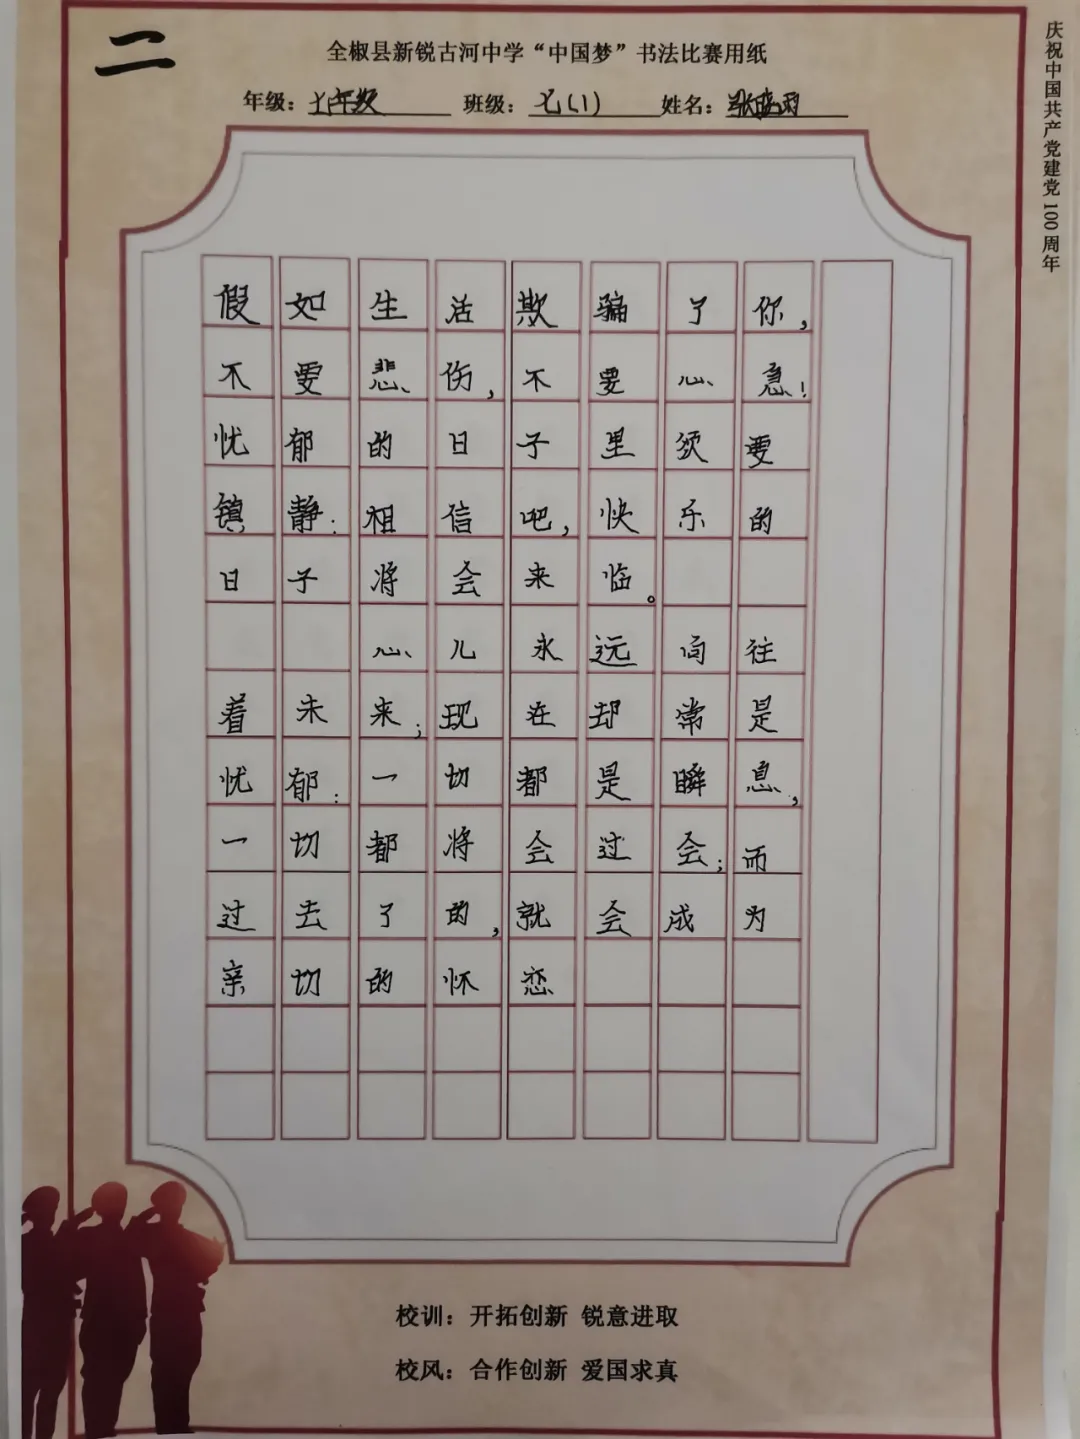 二
全椒县新锐古河中学“中国梦”书法比赛用纸
年级：七年级 班级：七(1) 姓名：张晓雨
庆祝中国共产党建党100周年
假如生活欺骗了你，
不要悲伤，不要心急！
忧郁的日子里须要
镇静：相信吧，快乐的
日子将会来临。
心儿永远向往
着未来；现在却常是
忧郁：一切都是瞬息，
一切都将会过会；而
过去了的，就会成为
亲切的怀恋
校训：开拓创新 锐意进取
校风：合作创新 爱国求真